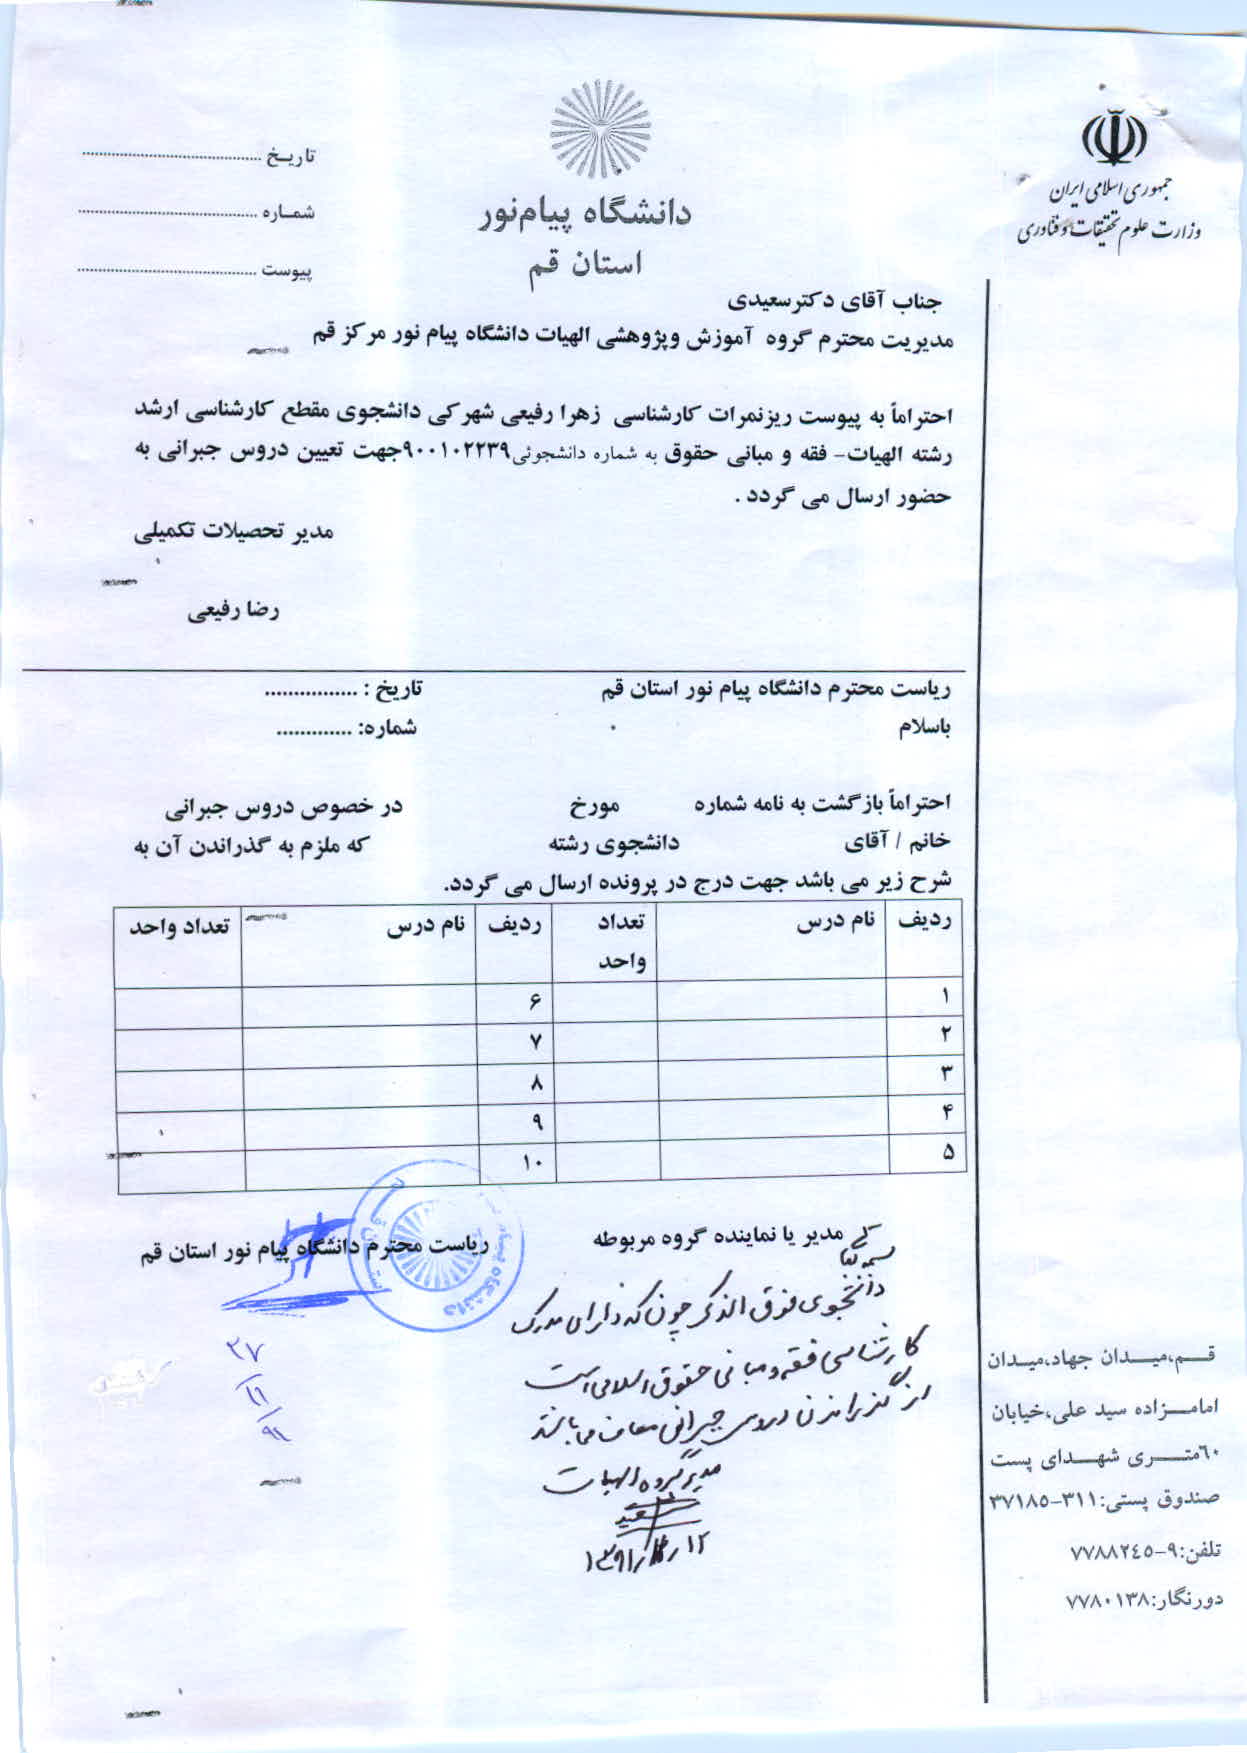 جمهوری اسلامی ایران
وزارت علوم تحقیقات و فناوری
دانشگاه پیام‌نور
استان قم
تاریـخ ........................................
شمـاره ........................................
پیوست ........................................
جناب آقای دکترسعیدی
مدیریت محترم گروه آموزش وپژوهشی الهیات دانشگاه پیام نور مرکز قم
احتراماً به پیوست ریزنمرات کارشناسی زهرا رفیعی شهرکی دانشجوی مقطع کارشناسی ارشد
رشته الهیات- فقه و مبانی حقوق به شماره دانشجوئی۹۰۰۱۰۲۲۳۹جهت تعیین دروس جبرانی به
حضور ارسال می گردد .
مدیر تحصیلات تکمیلی
رضا رفیعی
ریاست محترم دانشگاه پیام نور استان قم تاریخ : ................
باسلام شماره: .............
احتراماً بازگشت به نامه شماره مورخ در خصوص دروس جبرانی
خانم / آقای دانشجوی رشته که ملزم به گذراندن آن به
شرح زیر می باشد جهت درج در پرونده ارسال می گردد.
ردیف نام درس تعداد واحد ردیف نام درس تعداد واحد
۱ ۶
۲ ۷
۳ ۸
۴ ۹
۵ ۱۰
مدیر یا نماینده گروه مربوطه ریاست محترم دانشگاه پیام نور استان قم
دانشجوی فوق الذکر چون که دارای مدرک
کارشناسی فقه و مبانی حقوق اسلامی است
از گذراندن دروس جبرانی معاف می باشند
مدیر گروه الهیات
۲۷
۱۱
۹۱
قـــم،میـــدان جهاد،میـدان
امامـــزاده سید علی،خیابان
۶۰متـــری شهـــدای پست
صندوق پستی:۳۱۱-۳۷۱۸۵
تلفن:۹-۷۷۸۸۲۴۵
دورنگار:۷۷۸۰۱۳۸